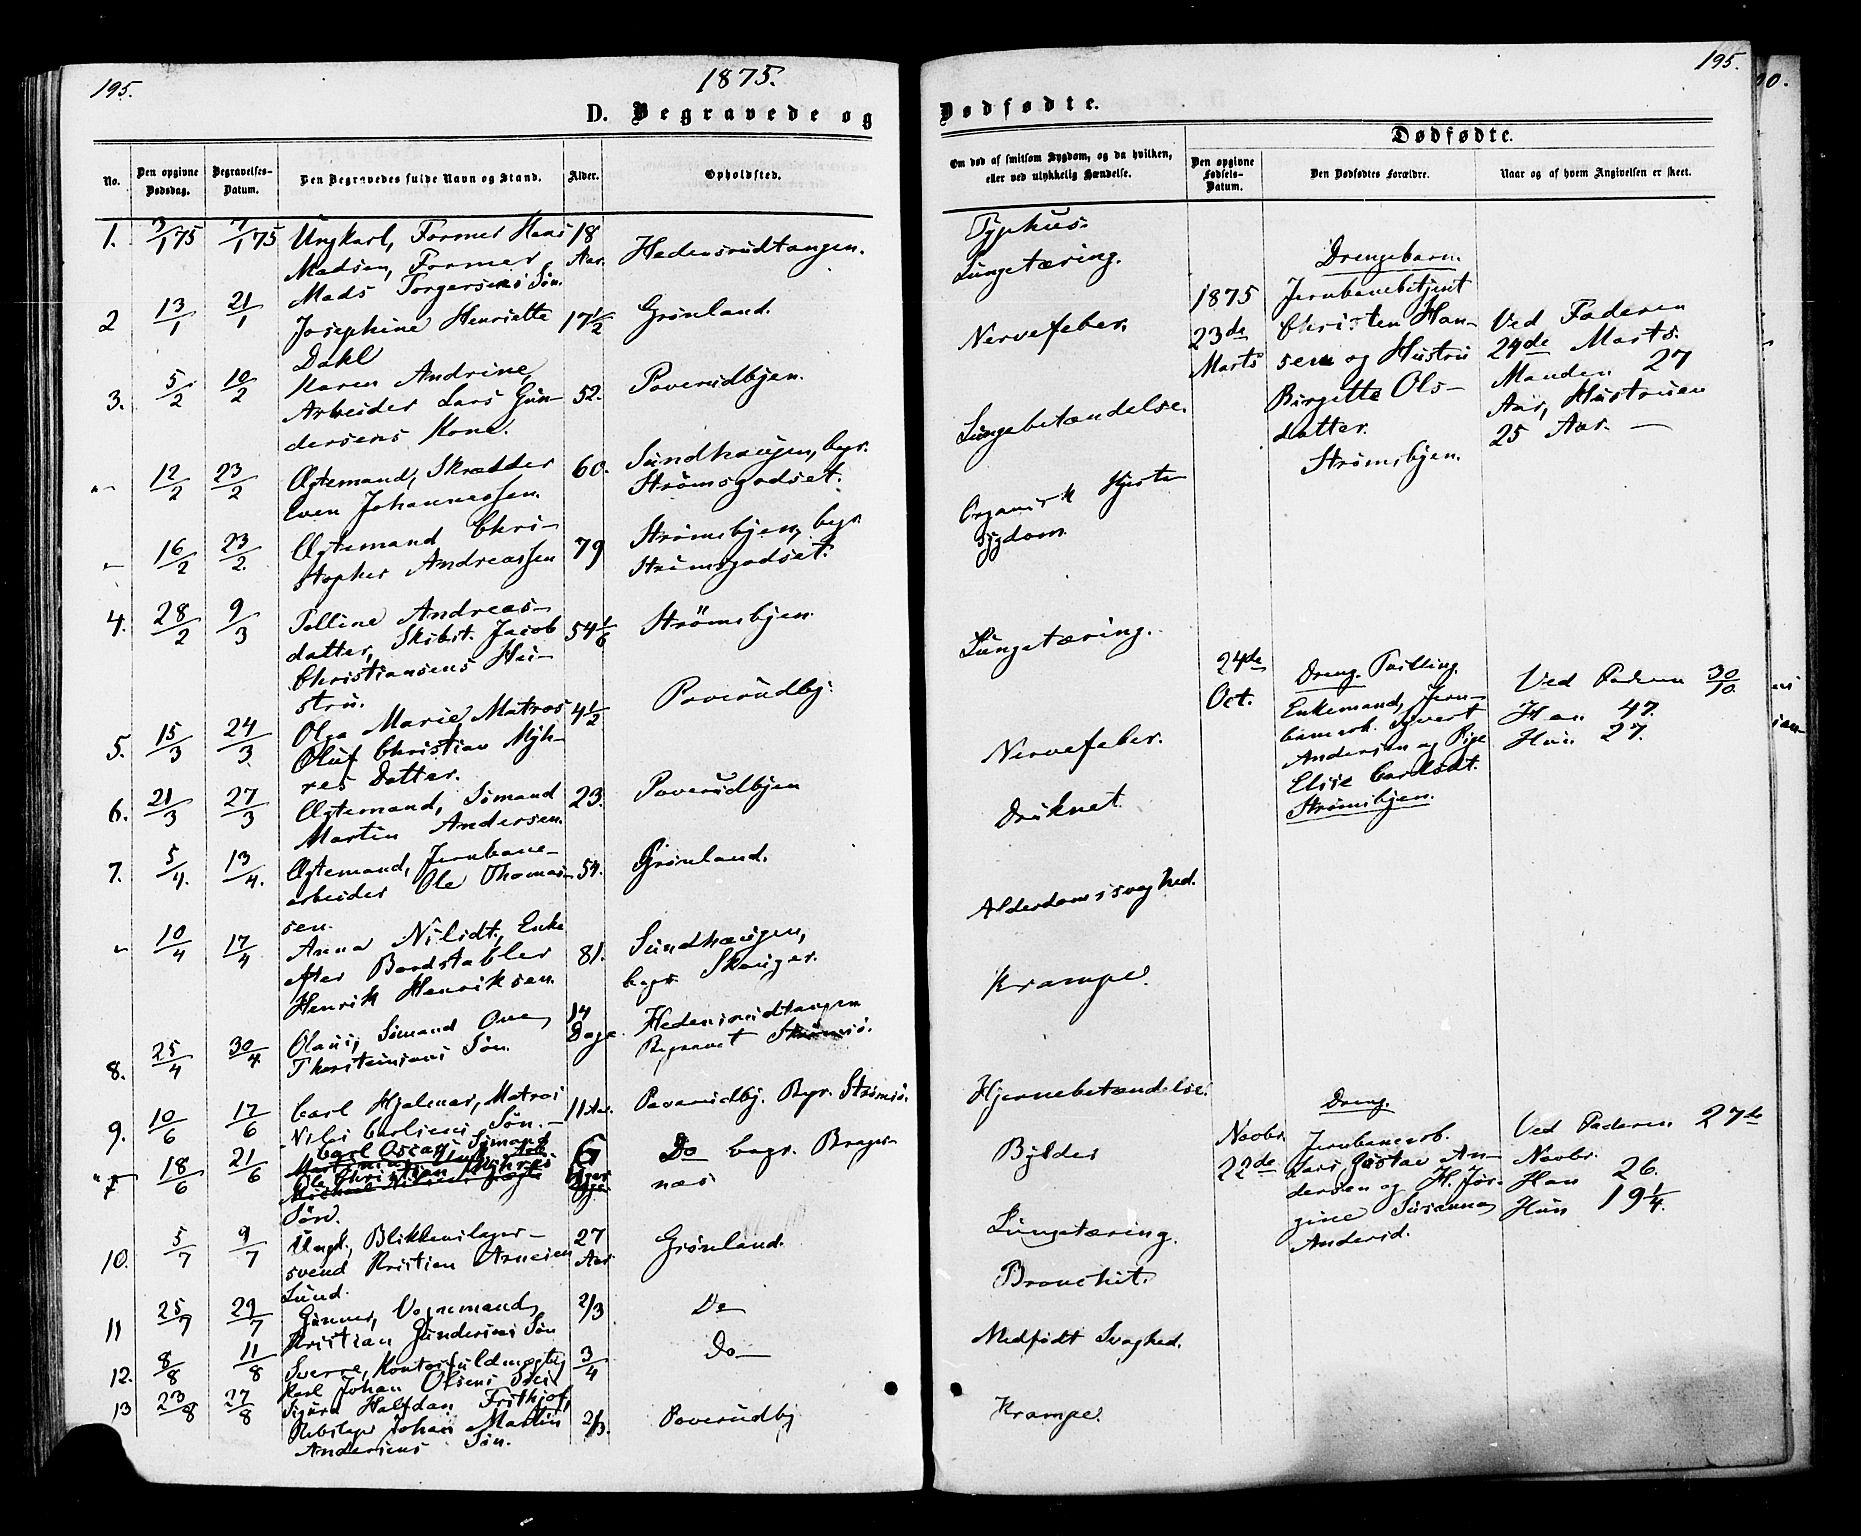 195.
1875.
195.
D. Begravede og
Dødfødte.
No.
Den opgivne Dødsdag.
Begravelses-Datum.
Den Begravedes fulde Navn og Stand.
Alder.
Opholdsted.
Om død af smitsom Sygdom, og da hvilken, eller ved ulykkelig Hændelse.
Dødfødte.
Den opgivne Fødsels-Datum.
Den Dødfødtes Forældre.
Naar og af hvem Angivelsen er skeet.
1. 3/1 75 7/1 75 Ungkarl, Former Hans 18 Aar. Hedensrudtangen.
Madsen, Former
Mads Torgersens Søn.
2 13/1 21/1 Josephine Henriette 17 1/2 Grønland.
Dahl
3. 5/2 10/2 Karen Andrine, 52. Poverudbyen.
Arbeider Lars Gun-
dersens Kone.
"- 12/2 23/2 Ægtemand, Skrædder 60. Sundhaugen, begr.
Even Johannessen. Strømsgodset.
- 16/2 23/2. Ægtemand Chri- 79 Strømsbyen, begr.
stopher Andreassen Strømsgodset.
4. 28/2 9/3 Pelline Andreas- 54 1/6 Strømsbyen
datter, Skibst. Jacob
Christiansens Hu-
stru.
5. 15/3 24/3 Olga Marie, Matros 4 1/2 Poverudby.
Oluf Christian Myh-
res Datter.
6. 21/3 27/3 Ægtemand, Sømand 23. Poverudbyen
Martin Andersen.
7. 5/4. 13/4. Ægtemand, Jernbane- 54. Grønland.
arbeider Ole Thomas-
sen.
- 10/4 17/4 Anna Nilsdt., Enke 81. Sundhaugen,
efter Bordstabler begr. Skouger.
Henrik Henriksen.
8. 25/4 30/4. Olaus, Sømand Ove 14 Dage. Hedensrudtangen
Thorsteinsens Søn. Begravet Strømsø.
9. 10/6 17/6 Carl Hjalmar, Matros 11 Aar. Poverudby. Begr. Strømsø.
Nils Carlsens Søn.-
18/6 21/6 Carl Oscar, Sømand 6 Do begr. Bragernæs
Ole Christian Myhres
Søn.
10. 5/7 9/7 Ungk., Blikkenslager- 27 Aar Grønland.
svend Kristian Arnesen
Lund.
11 25/7 29/7 Gunner, Vognmand 2/3 Do
Kristian Gundersens Søn
12. 8/8 11/8 Sverre, Kontorfuldmægtig 3/4 Do-
Karl Johan Olsens Søn
13 23/8 27/8 Sigurd Halfdan Frithjof, 2/3. Poverudby
Rebslager Johan Martin
Andersens Søn.
Typhus.
Lungetæring.
Nervefeber.
Lungebetændelse.
Organisk Hjerte
sygdom.
Lungetæring.
Nervefeber.
Druknet.
Alderdomssvaghed.
Krampe.
Hjernebetændelse.
Bylder
Lungetæring.
Bronchit.
Medfødt Svaghed.
Krampe.
1875
23de
Marts
Drengebarn.
Jernbanebetjent
Christen Han-
sen og Hustru
Birgette Ols-
datter.
Strømsbyen.
Ved Faderen
24de Marts.
Manden 27
Aar, Hustruen
25 Aar. -
24de
Oct.
Dreng. Tvilling.
Enkemand, Jern-
banearb. Syvert
Andersen og Pige
Elise Carlsdt.
Strømsbyen.
Ved Faderen 30/10
Han 47.
Hun 27.
Novbr.
22de
Dreng.
Jernbanearb.
Lars Gustav An-
dersen og H. Jør-
gine Susanna
Andersd.
Ved Faderen 27de
Novbr.
Han 26.
Hun 19 1/4.